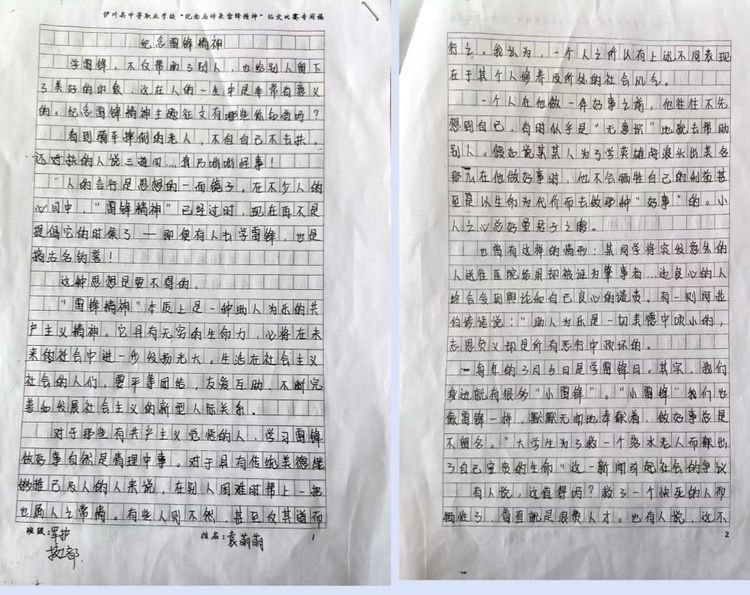 伊川县中等职业学校"纪念与师永雷锋精神"征文比赛专用稿
纪念雷锋精神
学雷锋,不仅帮助了别人,也给别人留下
了美好的印象,这在人的一生中是非常有意义
的。纪念雷锋精神主题征文有哪些你知道吗?
看到骑车摔倒的老人,不但自己不去扶,
还对扶的人说三道四…真乃咄咄怪事!
"人的言行是思想的一面镜子。在不少人的
心目中,"雷锋精神"已经过时,现在再不是
提倡它的时候了——即便有人去学雷锋,也是
摘去名钩誉!
这种思想是要不得的。
"雷锋精神"本质上是一种助人为乐的共
产主义精神。它具有无穷的生命力,必将在未
来的社会中进一步发扬光大。生活在社会主义
社会的人们,要平等团结,友爱互助,不断完
善和发展社会主义的新型人际关系。
对于那些有共产主义觉悟的人,学习雷锋
做好事自然是情理中事。对于具有传统美德继
推己及人的人来说,在别人困难时帮上一把
也属人之常情。有些人则不然,甚至反其道而
班级:军护
姓名:袁萌萌
1
行之,我认为,一个人之所以有上述不同表现
在于其个人修养及所处的社会风气。
一个人在他做一件好事之前,他往往不先
想到自己,有时似乎是"无事探"地就去帮助
别人。假如说某某人为了学英雄将浪头出美名
那么在他做好事时,他不会牺牲自己的利益甚
至是以生命为代价而去做那种"好事"的。小
人之心总好量君子之腹。
也曾有这样的情形:某同学将突发意外的
人送往医院结果却被诬为肇事者…边良心的人
终会受到舆论和自己良心的谴责。有一则阿拉
伯谚语说:"助人为乐是一切美德中顶小的,
忘恩负义却是所有恶行中顶坏的。
每年的3月5日是学雷锋日。其实,我们
身边就有很多"小雷锋"。"小雷锋"我们也
像雷锋一样,默默无闻地奉献着,做好事总是
不留名。"大学生为了救一个落水老人而献出
了自己宝贵的生命"这一新闻引起社会的争议
有人说,这值得吗?救了一个快死的人而
牺牲了,简直就是浪费人才。也有人说,这不
2